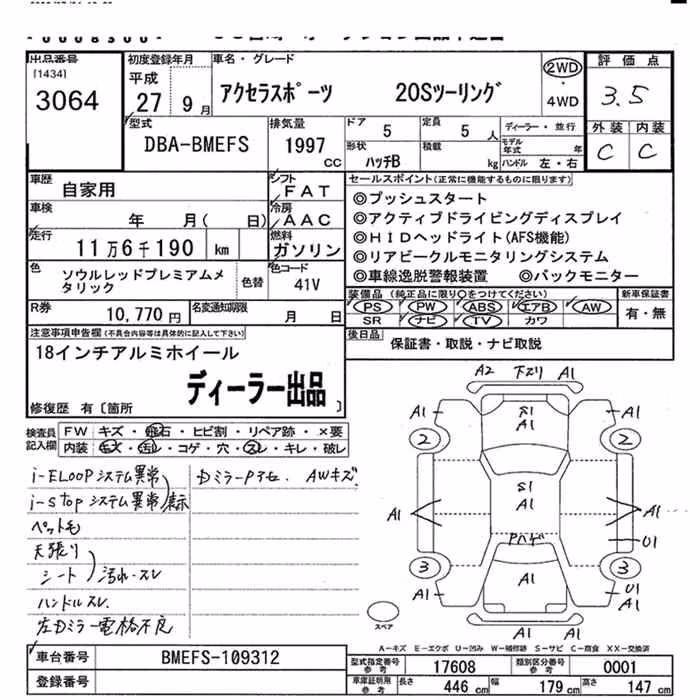 出品番号 初度登録年月 車名・グレード 評価点
[1434] 平成 2WD
3064 27 9月 アクセラスポーツ 20Sツーリング ・ 3.5
4WD
型式 排気量 ドア 5 定員 5人 ディーラー・並行 外装 内装
DBA-BMEFS 1997cc 形状 ハッチB 積載 kg モデル年式 年 C C
ハンドル 左・右
車歴 自家用 シフト FAT セールスポイント(正常に機能するものに限ります)
◎プッシュスタート
車検 年 月( 日) 冷房 AAC ◎アクティブドライビングディスプレイ
走行 11万6千190 km 燃料 ガソリン ◎HIDヘッドライト(AFS機能)
◎リアビークルモニタリングシステム
色 ソウルレッドプレミアムメタリック 色替 色コード 41V ◎車線逸脱警報装置 ◎バックモニター
R券 10,770円 名変通知期限 月 日 装備品(純正品に限り○をつけてください) 新車保証書
PS PW ABS エアB AW 有・無
SR ナビ TV カワ
注意事項申告欄(不具合内容等は具体的に記入して下さい) 後日品
18インチアルミホイール 保証書・取説・ナビ取説
ディーラー出品
修復歴 有〔箇所 〕
検査員記入欄 FW キズ・飛石・ヒビ割・リペア跡・×要
内装 毛ズ・汚レ・コゲ・穴・スレ・キレ・破レ
i-ELOOPシステム異常 DミラーPアセ. AWキズ
i-stopシステム異常 表示
ペット毛
天張り
シート 汚れ・スレ
ハンドルスレ.
左Dミラー電格不良
A2 下スリ A1
A1 S1 A1 A1
2 2
S1
A1 A1 A1
Pハゲ U1
3 3
A1 A1 U1
A1
スペア
A-キズ E-エクボ U-凹み W-補修跡 S-サビ C-腐食 XX-交換済
車台番号 BMEFS-109312
登録番号
型式指定番号参考 17608 類別区分番号参考 0001
車庫証明用参考 長さ 446cm 幅 179cm 高さ 147cm